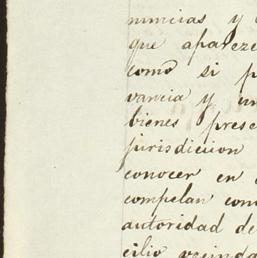 nuncias y
que apareze
como si p
vancia y un
bienes prese
jurisdicion
conocer en
compelan com
autoridad de
cilio vecinda